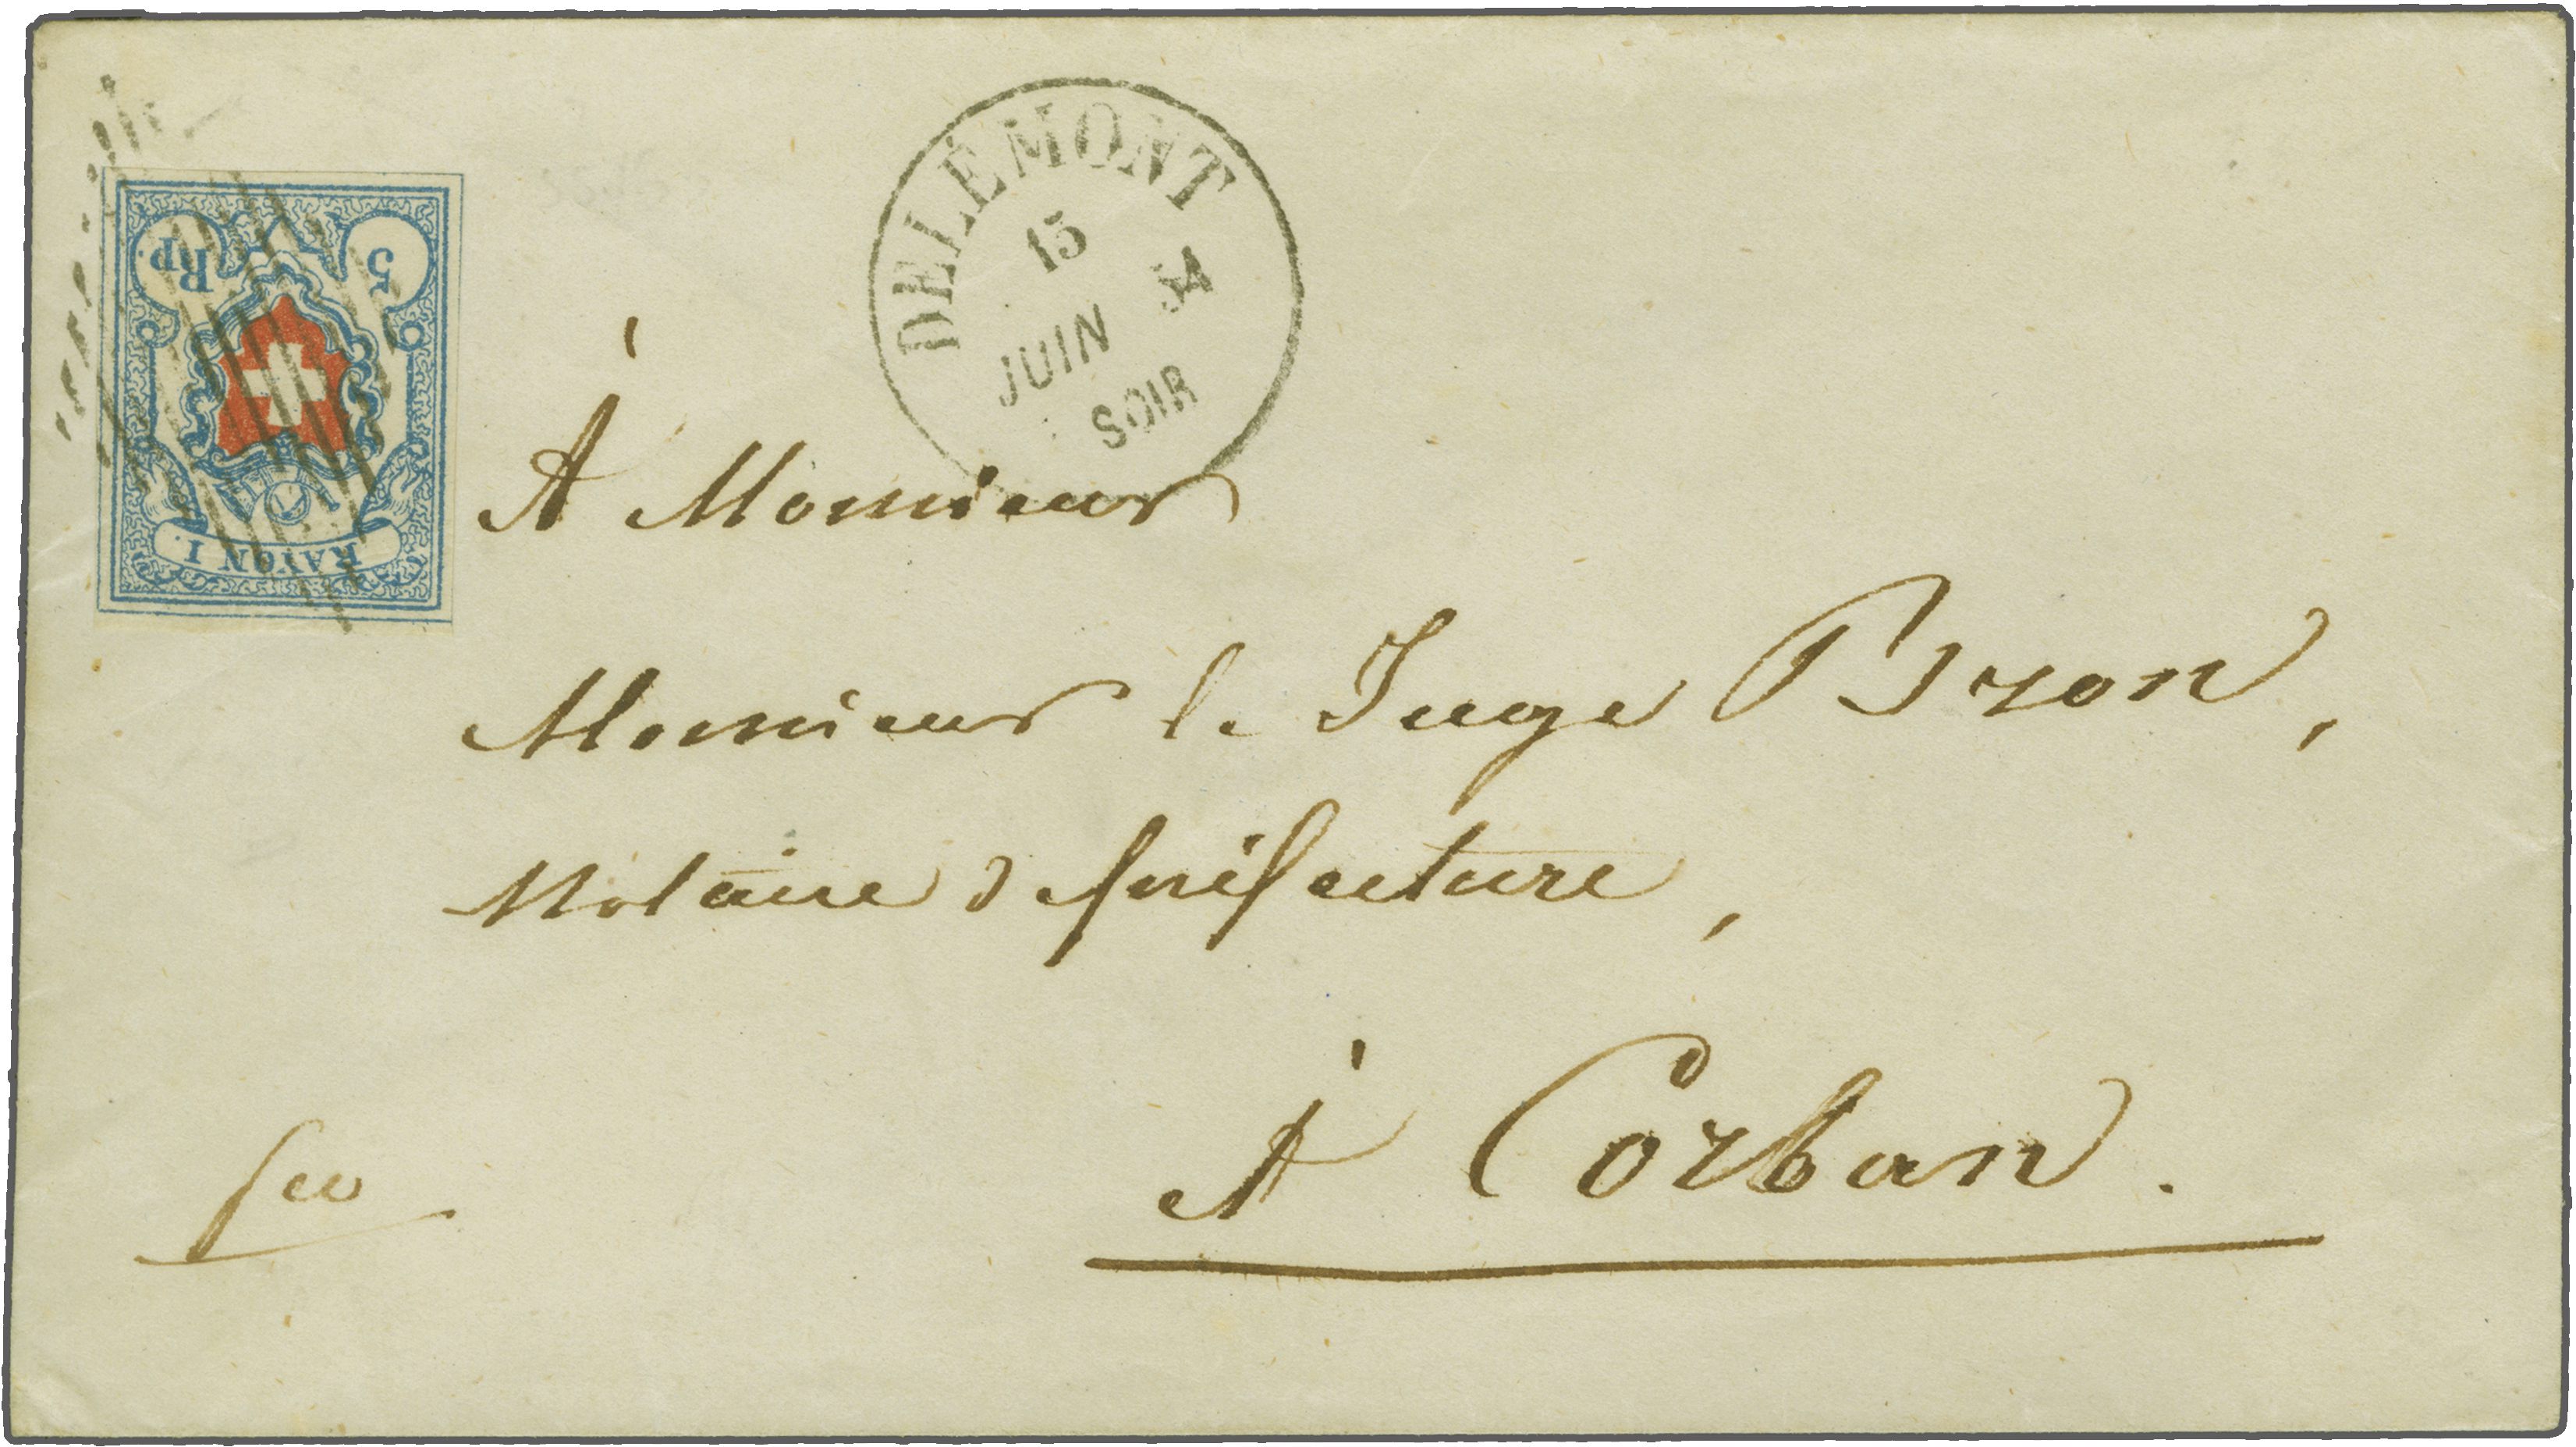 DELÉMONT
15
JUIN 54
SOIR
5 Rp.
RAYON I.
À Monsieur
Monsieur le Juge Bron,
Notaire & préfecture,
À Corban.
fco